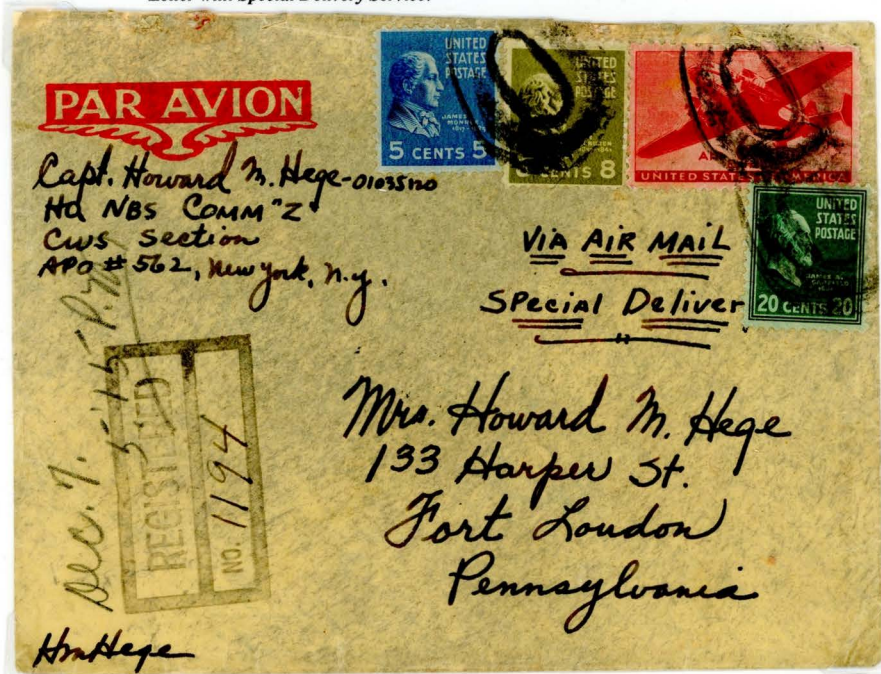 Letter with Special Delivery Service.
PAR AVION
Capt. Howard M. Hege-01035120
HQ NBS COMM "Z"
CWS Section
APO # 562, New York, N.Y.
UNITED
STATES
POSTAGE
JAMES
MONROE
5 CENTS 5
UNITED
STATES
POSTAGE
CENTS 8
UNITED STATES OF AMERICA
UNITED
STATES
POSTAGE
JAMES A.
GARFIELD
20 CENTS 20
VIA AIR MAIL
Special Deliver
Mrs. Howard M. Hege
133 Harper St.
Fort Loudon
Pennsylvania
Dec. 7.
REGISTERED
NO. 1194
HmHege